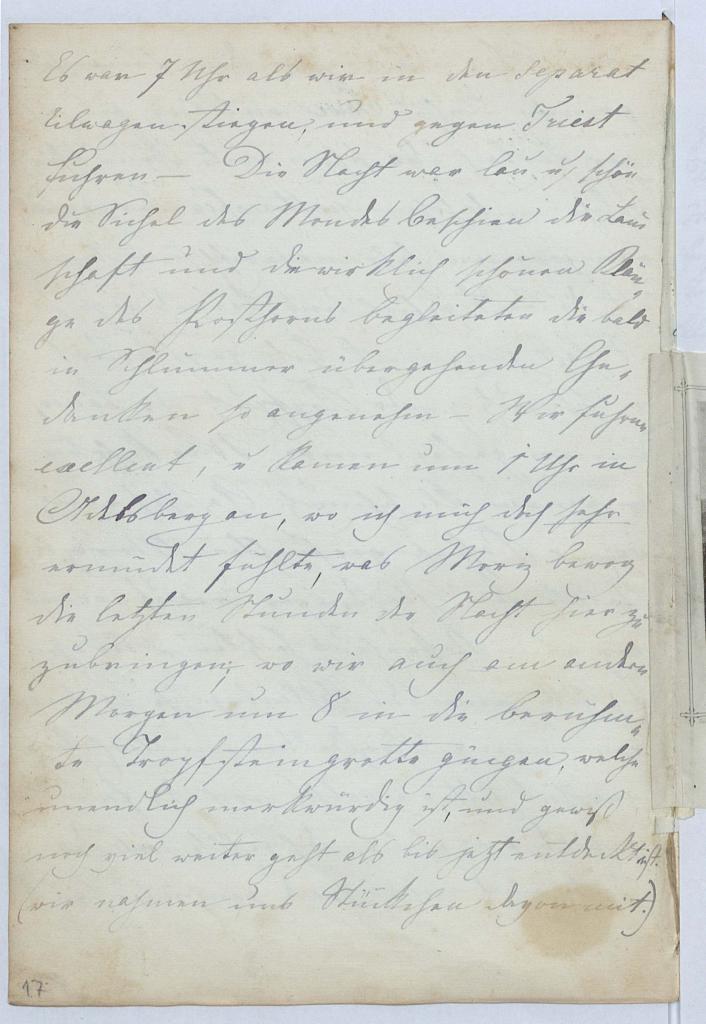 Es war 7 Uhr als wir in den separat
Eilwagen stiegen, und gegen Triest
fuhren — Die Nacht war lau u. schön
die Sichel des Mondes beschien die Lan„
schaft und die wirklich schönen Klän„
ge des Posthorns begleiteten die bald
in Schlummer übergehenden Ge„
danken so angenehm — Wir fuhren
excellent, u kamen um 1 Uhr in
Adelsberg an, wo ich mich doch sehr
ermüdet fühlte, was Moriz bewog
die letzten Stunden der Nacht hier zu
zubringen; wo wir auch am andern
Morgen um 8 in die berühm„
te Tropfsteingrotte giengen, welche
unendlich merkwürdig ist, und gewiß
noch viel weiter geht als bis jetzt entdeckt ist.
(wir nahmen uns Stückchen davon mit.)
17